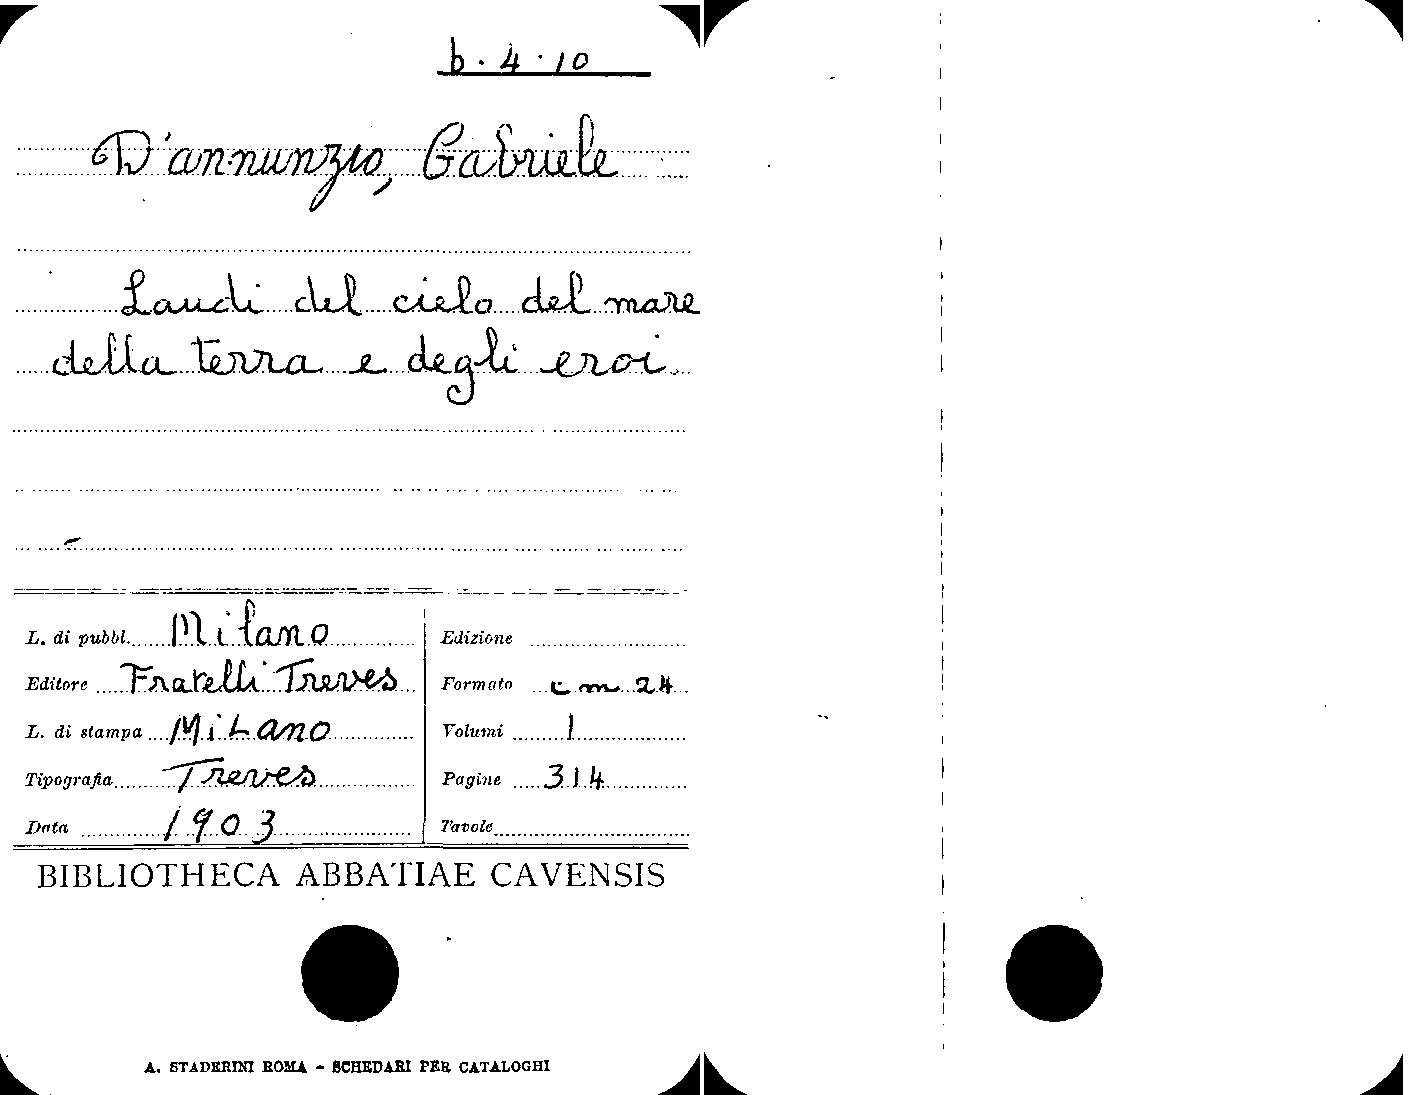 b. 4. 10
D'annunzio, Gabriele
Laudi del cielo del mare
della terra e degli eroi
L. di pubbl. Milano
Editore Fratelli Treves
L. di stampa Milano
Tipografia Treves
Data 1903
Edizione
Formato cm 24
Volumi 1
Pagine 314
Tavole
BIBLIOTHECA ABBATIAE CAVENSIS
A. STADERINI ROMA - SCHEDARI PER CATALOGHI